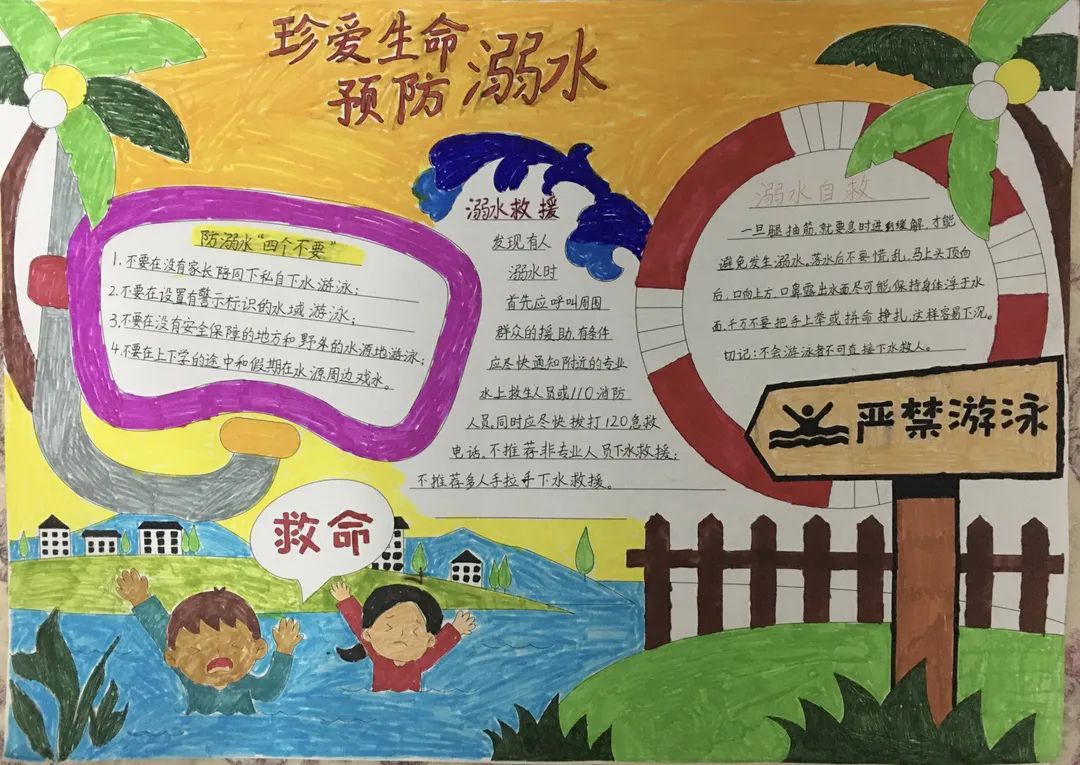 珍爱生命
预防溺水
防溺水“四个不要”
1.不要在没有家长陪同下私自下水游泳；
2.不要在设置有警示标识的水域游泳；
3.不要在没有安全保障的地方和野外的水源地游泳；
4.不要在上下学的途中和假期在水源周边戏水。
溺水救援
发现有人
溺水时
首先应呼叫周围
群众的援助，有条件
应尽快通知附近的专业
水上救生人员或110消防
人员，同时应尽快拨打120急救
电话，不推荐非专业人员下水救援；
不推荐多人手拉手下水救援。
溺水自救
一旦腿抽筋，就要息时进缓解，才能
避免发生溺水。落水后不要慌乱，马上头顶向
后，口向上方，口鼻露出水面尽可能，保持身体浮于水
面，千万不要把手上举或拼命挣扎，这样容易下沉。
切记：不会游泳者不可直接下水救人。
严禁游泳
救命